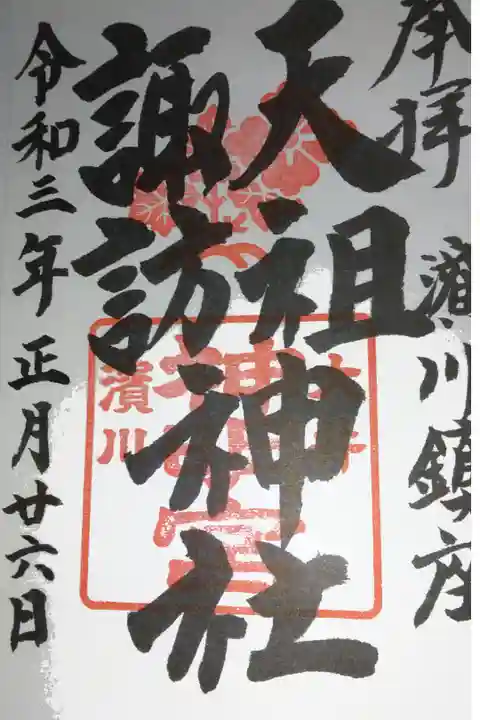 奉拝 濱川鎮座
天祖神社
諏訪神社
令和三年正月廿六日
濱川